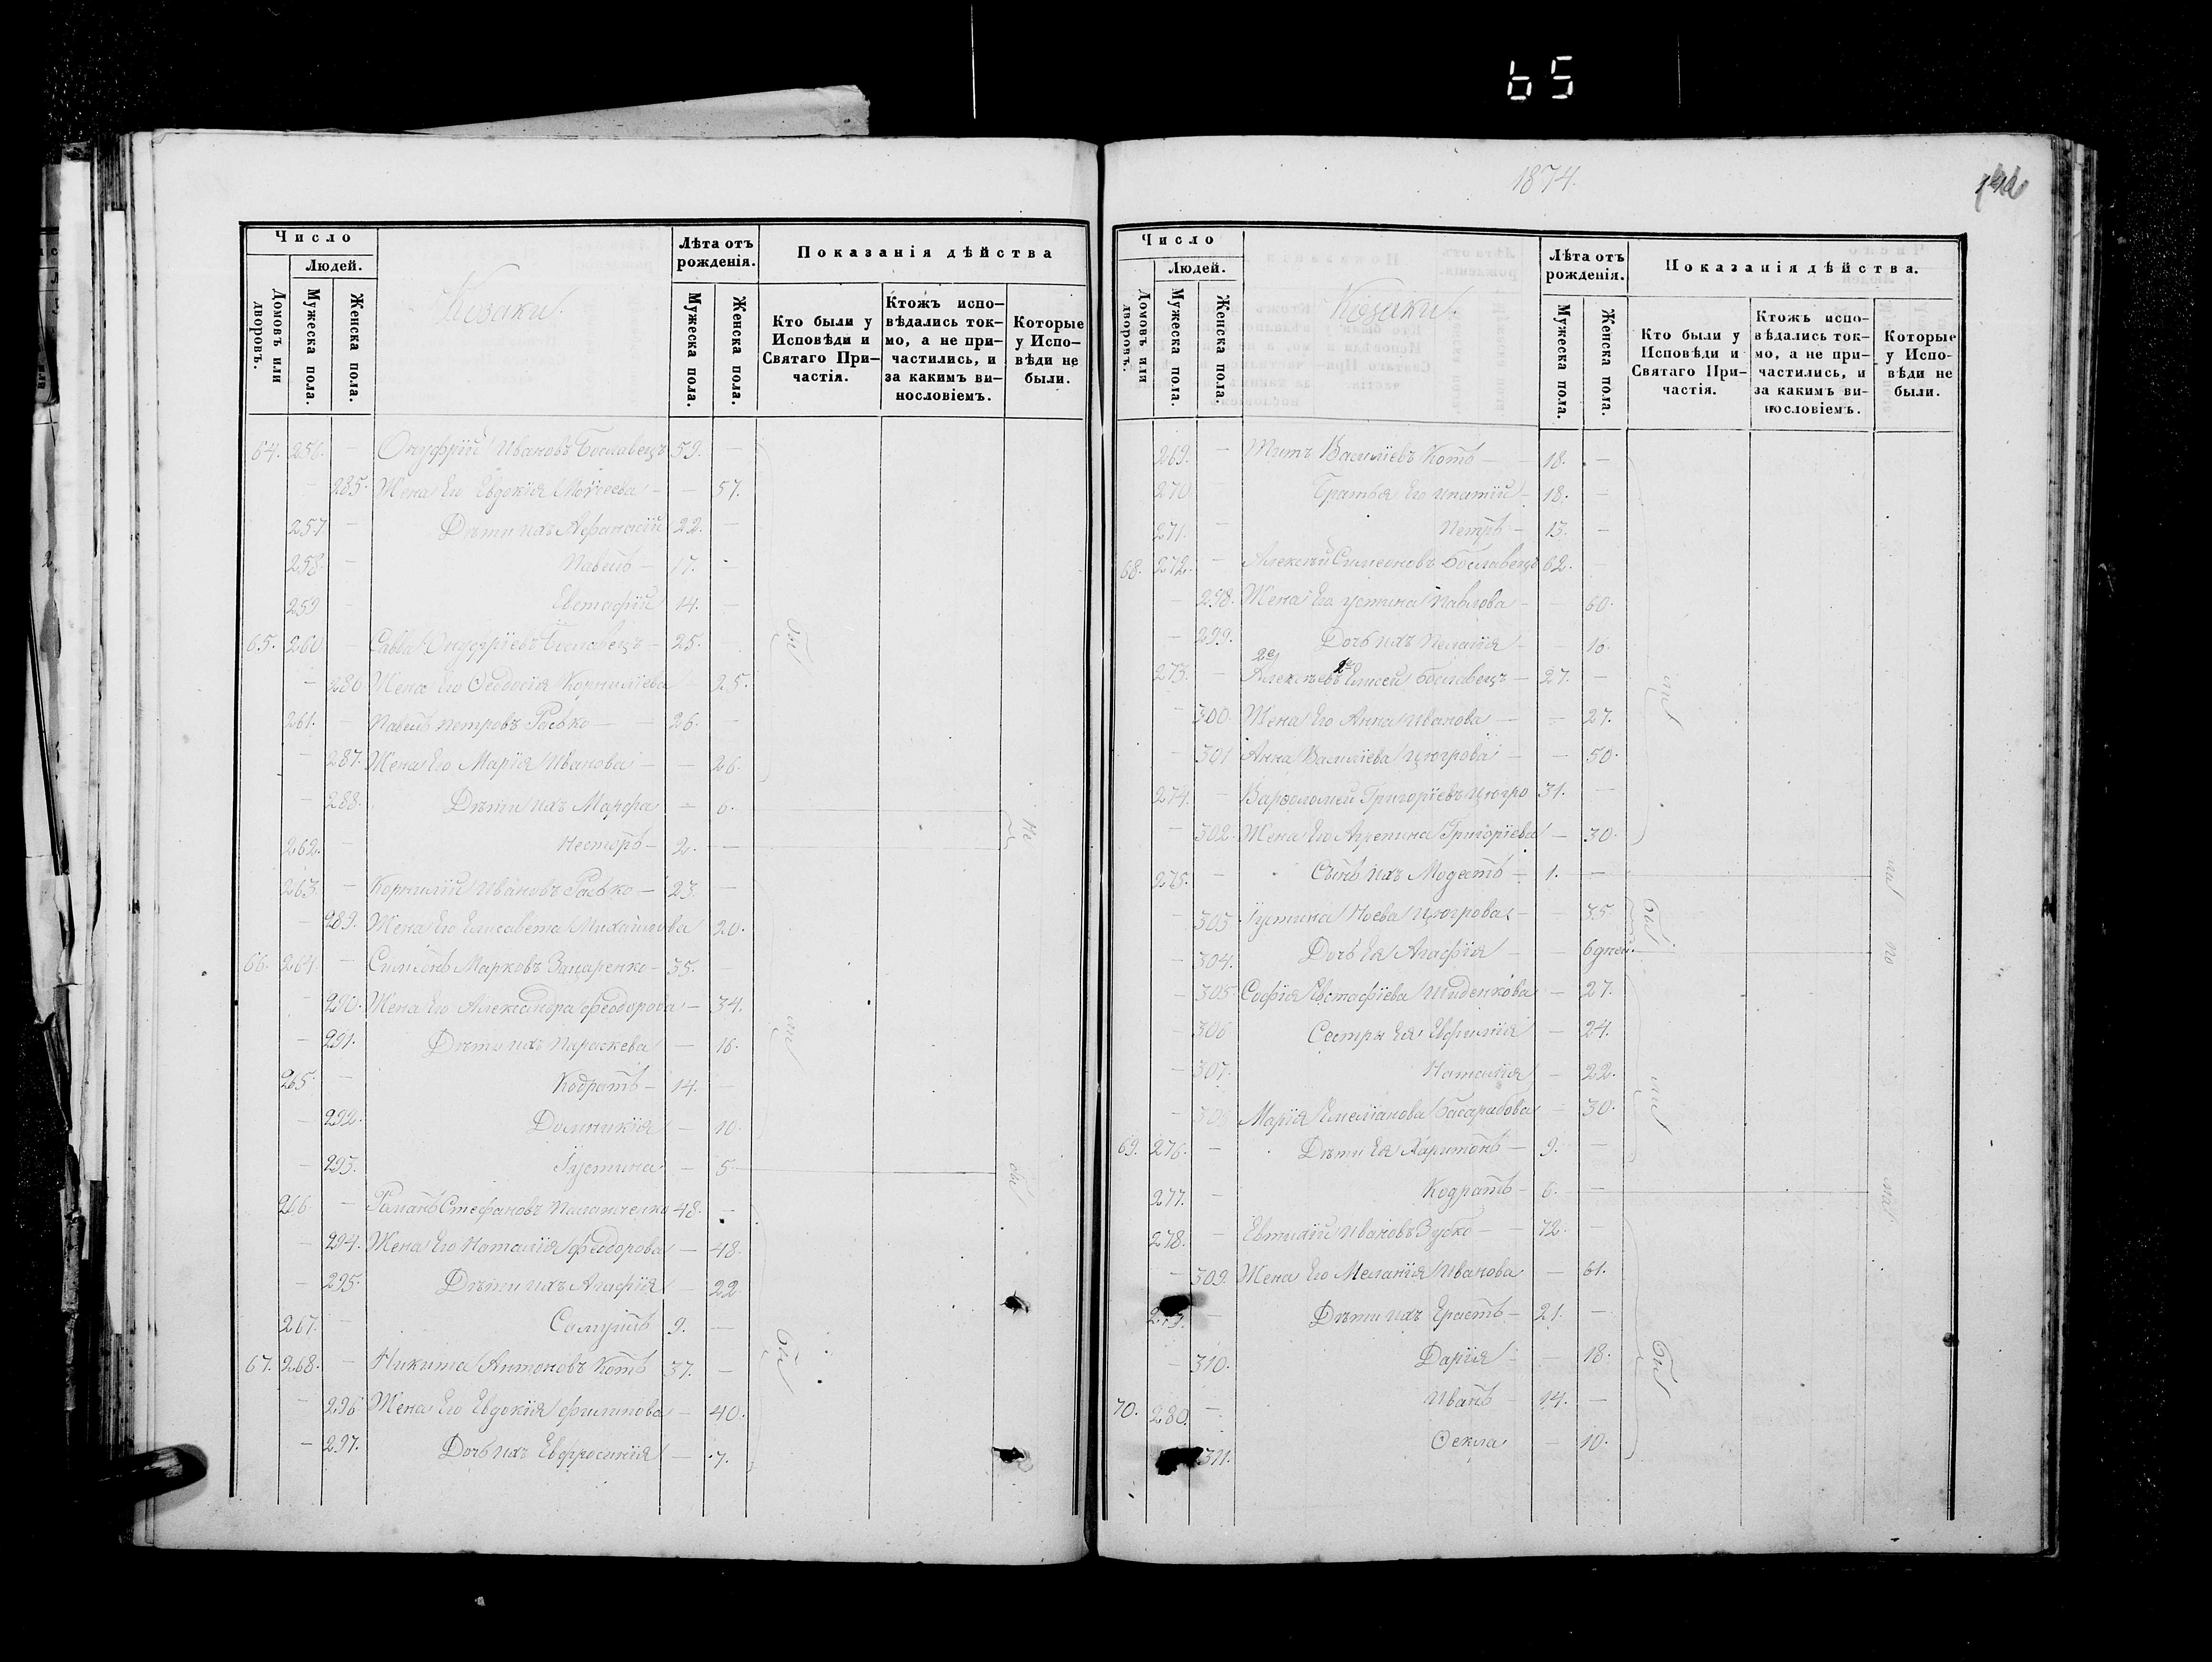 65
Число
Людей.
Домовъ или дворовъ.
Мужеска пола.
Женска пола.
Козаки.
Лѣта отъ рожденія.
Мужеска пола.
Женска пола.
Показанія дѣйства
Кто были у Исповѣди и Святаго Причастія.
Ктожъ исповѣдались токмо, а не причастились, и за какимъ винословіемъ.
Которые у Исповѣди не были.
64. 256. — Онуфрій Ивановъ Бославецъ 59. —
— 285. Жена Его Евдокія Моѵсеева — — 57.
257. — Дѣти ихъ Афанасій 22. —
258. — Павелъ — 17. —
259 — Евстафій 14. —
65. 260 — Савва Онуфріевъ Бославецъ — 25. —
— 286 Жена Его Ѳеодосія Корниліева — 25.
261. — Павелъ Петровъ Расько — — 26. —
— 287. Жена Его Марія Иванова — — 26.
— 288. Дѣти ихъ Марфа — 6.
262. — Несторъ — 2. —
263 — Корнилій Ивановъ Расько — 23. —
— 289. Жена Его Елисавета Михайлова 20.
66. 264. — Симеонъ Марковъ — 35. —
— 290. Жена Его Александра Феодорова — 34.
— 291. Дѣти ихъ Параскева — 16.
265. — Кодратъ — 14. —
— 292. Домникія — 10.
— 293. Іустина — 5.
266 — Романъ Стефановъ 48. —
— 294. Жена Его Наталія Феодорова — 48.
— 295. Дѣти ихъ Агафія — 22.
267. — Самуилъ 9. —
67. 268. — Никита Антоновъ Котъ 37. —
— 296 Жена Его Евдокія Филипова — 40.
— 297. Дочь ихъ Евфросинія — 7.
1874.
Число
Людей.
Домовъ или дворовъ.
Мужеска пола.
Женска пола.
Козаки.
Лѣта отъ рожденія.
Мужеска пола.
Женска пола.
Показанія дѣйства.
Кто были у Исповѣди и Святаго Причастія.
Ктожъ исповѣдались токмо, а не причастились, и за какимъ винословіемъ.
Которые у Исповѣди не были.
269. — Титъ Василіевъ Котъ — — 18. —
270 Братья Его Ипатій — 18. —
271. — Петръ — 13. —
68. 272. — Алексѣй Симеоновъ Бославецъ 62. —
— 298. Жена Его Устина Павлова — — 60.
— 299. Дочь ихъ Пелагія — — 16.
273. — Алексѣевъ Елисей Бославецъ — 27. —
— 300. Жена Его Анна Иванова — — 27.
— 301 Анна Василіева Цюгрова — — 50.
274. — Варѳоломей Григоріевъ Цюгро 31. —
— 302. Жена Его Агрепина Григоріева — 30.
275. — Сынъ ихъ Модестъ — 1. —
— 303. Іустина Ноева Цюгрова — — 35.
— 304. Дочь Ея Агафія — — 6 дней.
— 305. Софія Евстафіева — 27.
— 306 Сестры Ея Евфимія — 24.
— 307. Наталія — 22.
— 308 Марія Емеліанова Басарабова — 30.
69. 276. — Дѣти Ея Харитонъ — 9. —
277. — Кодратъ — 6. —
278. — Евтихій Ивановъ Зубко — — 72. —
— 309. Жена Его Меланія Иванова — 61.
279. — Дѣти ихъ Ерастъ — 21. —
— 310. Дарія — — 18.
70. 280. — Иванъ — 14. —
311. Ѳекла — 10.